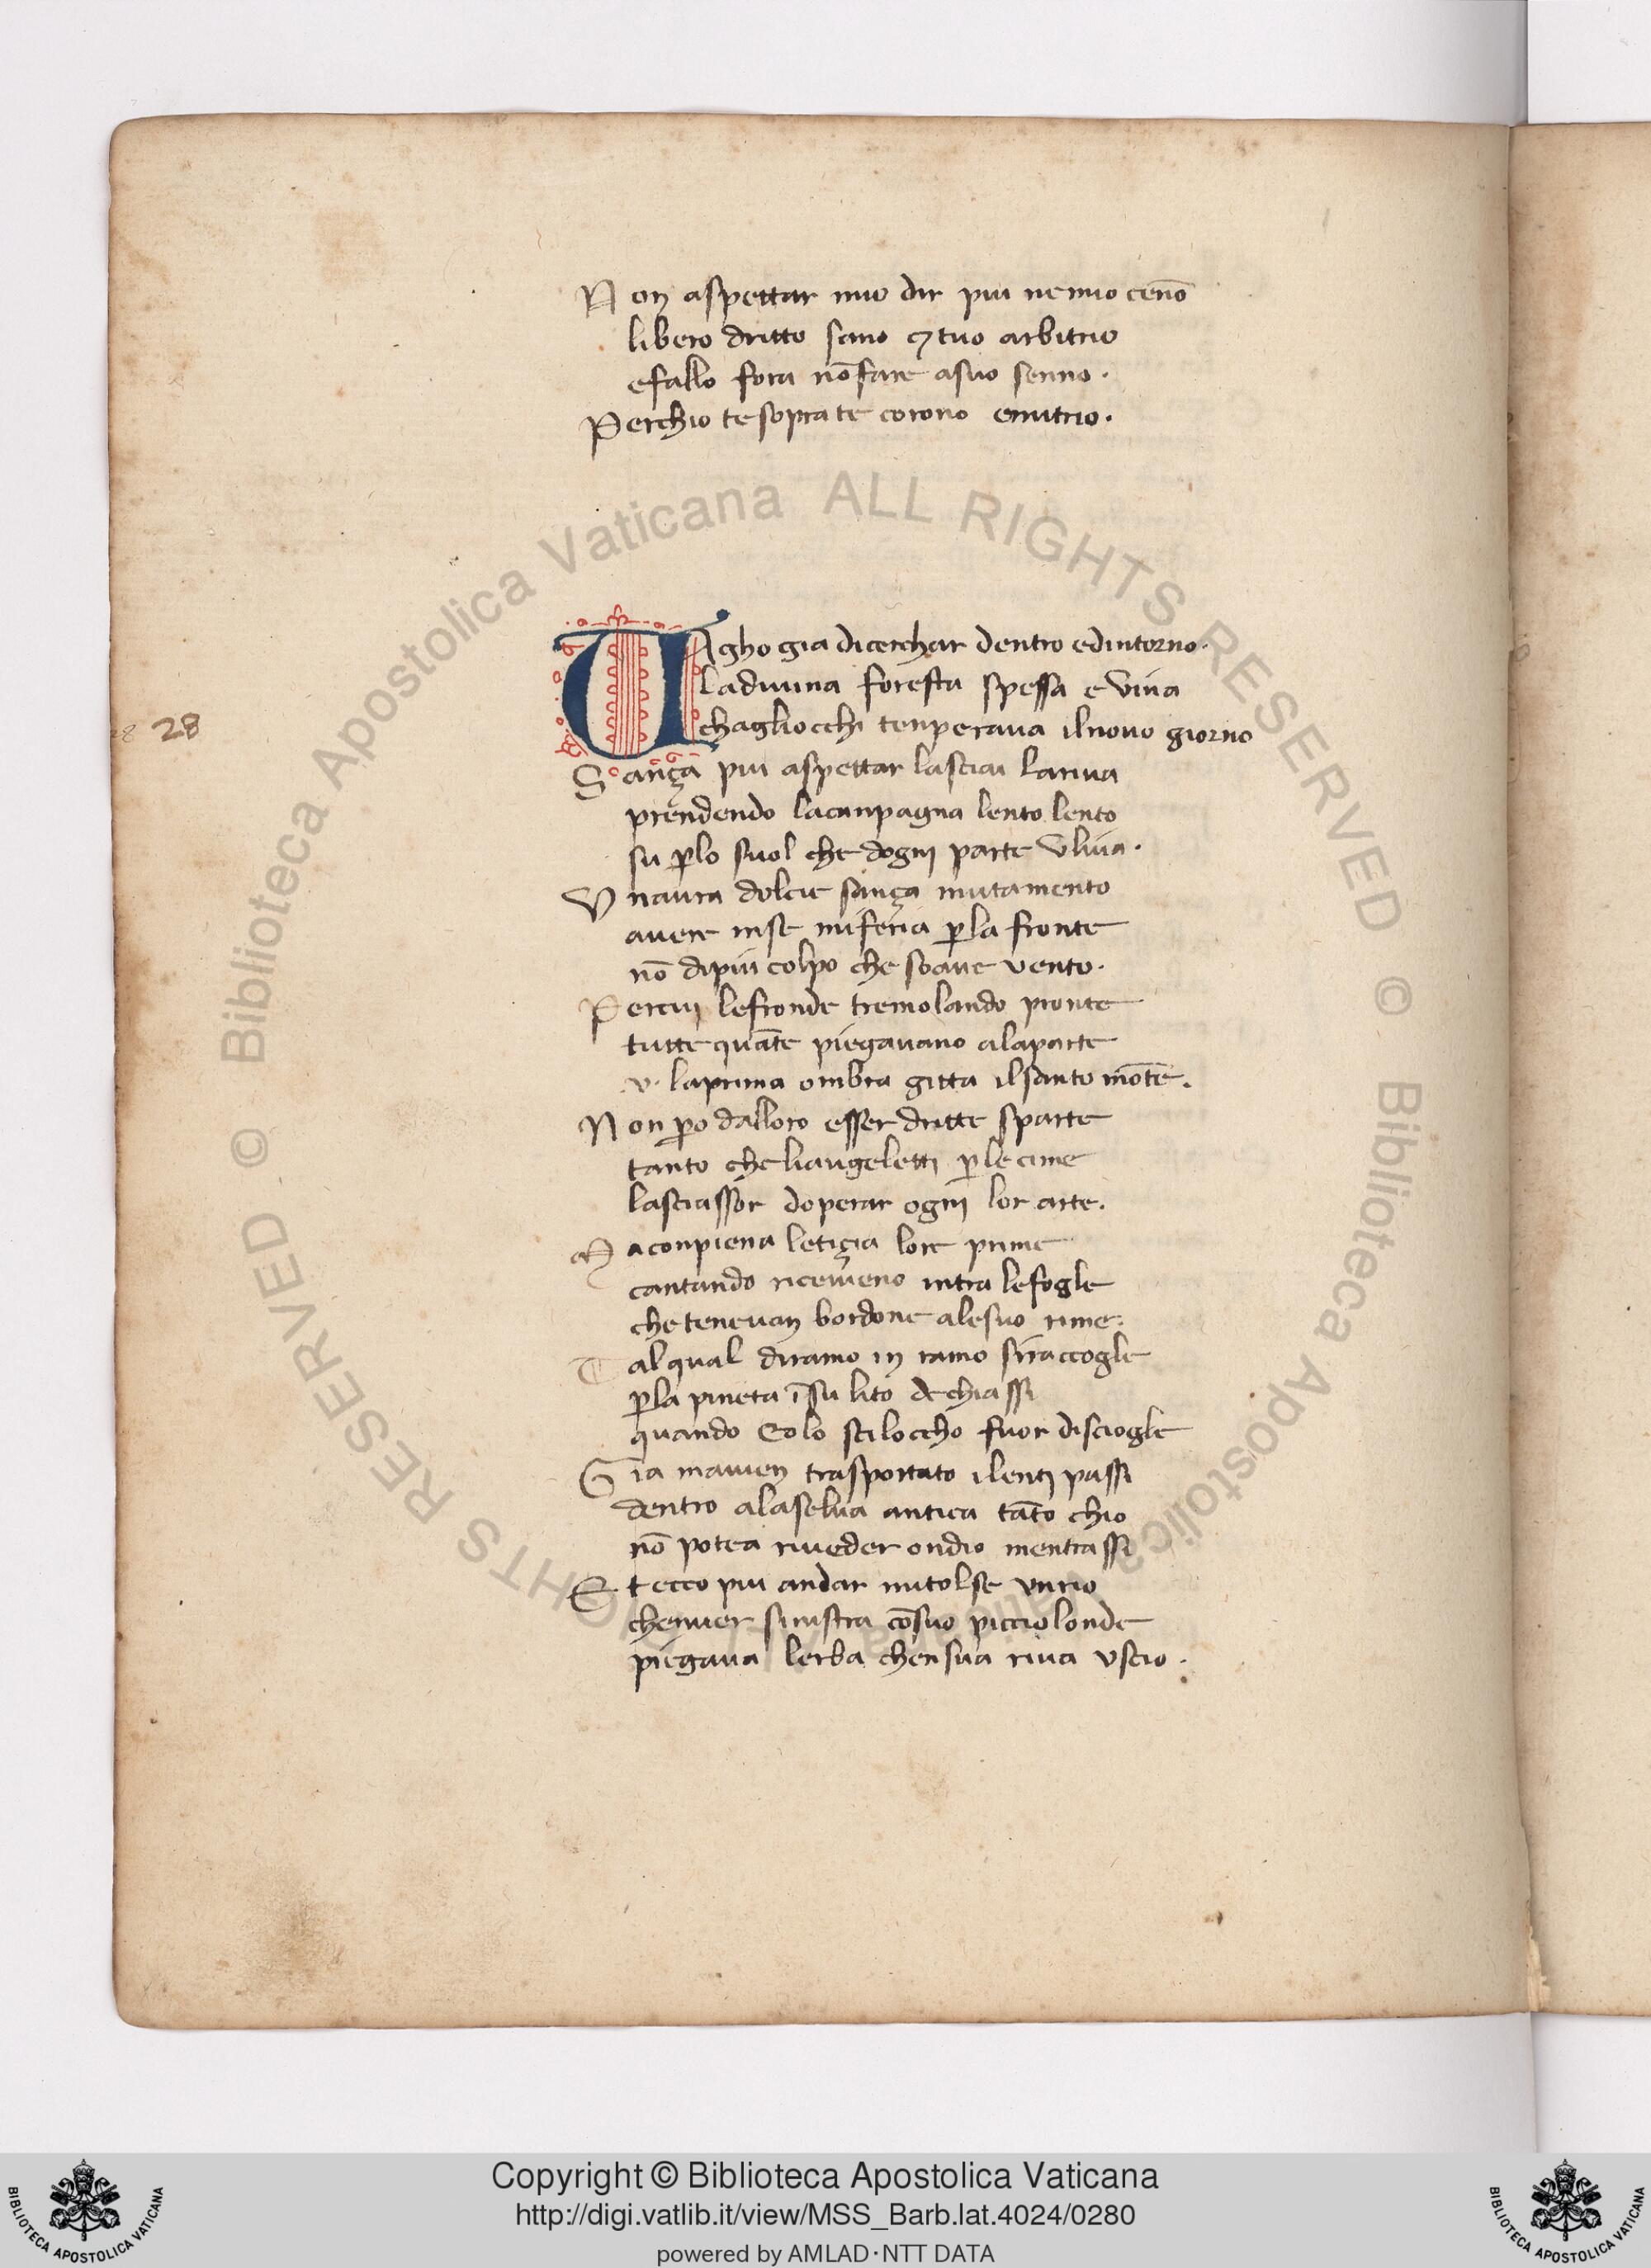 Non aspettar mio dir piu ne mio cen̄o
libero dritto sano ⁊ tuo arbitrio
efallo fora nō fare asuo senno·
Perchio te sopra te corono emitrio·
VAgho gia dicerchar dentro edintorno·
ladiuina foresta spessa e viua
chagliocchi tenperaua ilnouo giorno
28
Sança piu aspettar lasciai lariua
prendendo lacanpagna lento lento
su ꝑlo suol che dogni parte vliua·
Vnaura dolcie sança mutamento
auere inse miferia ꝑla fronte
nō dipiu colpo che soaue vento·
Percui lefronde tremolando pronte
tutte quāte piegauano alaparte
v· laprima ombra gitta ilsanto mōte·
Non ꝑo dalloro esser dritte sparte
tanto che liaugeletti ꝑ le cime
lasciassor doperar ogni lor arte·
Maconpiena letiçia lore prime
cantando riceuieno intra lefogle
che teneuan bordone alesuo rime:
Talqual diramo in ramo siraccogle
ꝑla pineta ī su lito de chiassi
quando Eolo sciloccho fuor disciogle
Gia mauien trasportato ilenti passi
dentro alaselua antica tāto chio
nō potea riueder ondio mentrassi
Et ecco piu andar mitolse vnrio
chenuer sinistra cōsuo picciolonde
piegaua lerba chensua riua vscio·
© Biblioteca Apostolica Vaticana ALL RIGHTS RESERVED © Biblioteca Apostolica Vaticana ALL RIGHTS RESERVED
Copyright © Biblioteca Apostolica Vaticana
http://digi.vatlib.it/view/MSS_Barb.lat.4024/0280
powered by AMLAD·NTT DATA
BIBLIOTECA APOSTOLICA VATICANA
BIBLIOTECA APOSTOLICA VATICANA